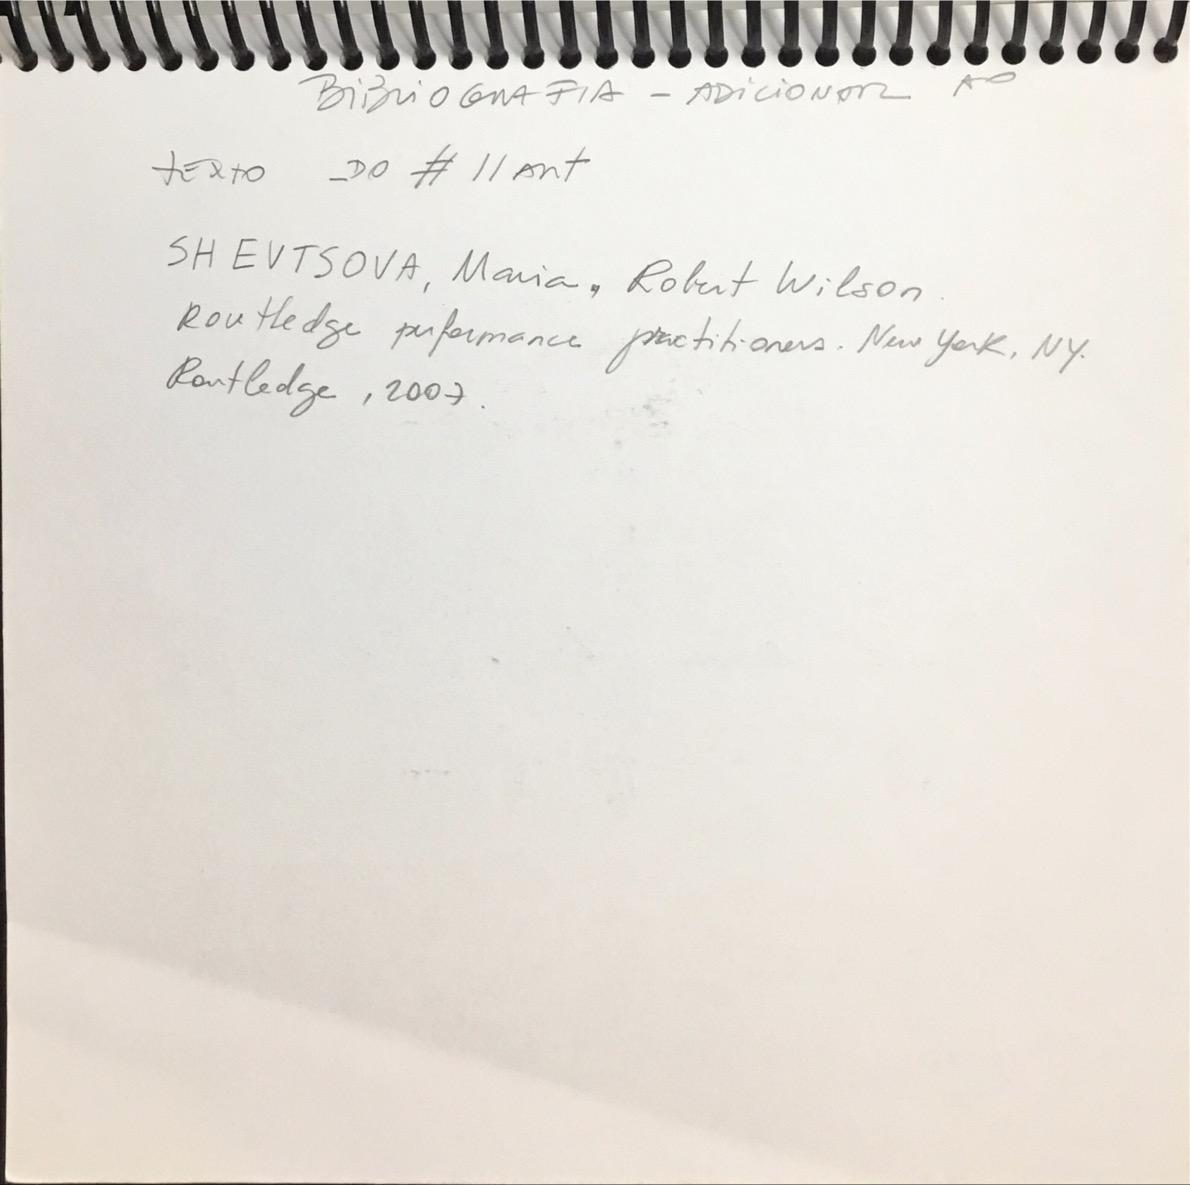 BIBLIOGRAFIA - ADICIONAR AO
TEXTO DO # 11 ANT
SHEVTSOVA, Maria, Robert Wilson.
Routledge performance practitioners. New York, NY.
Routledge, 2007.